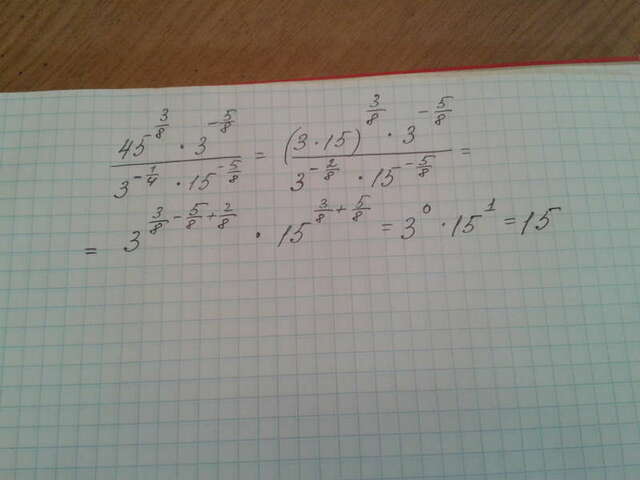 \frac{45^{\frac{3}{8}} \cdot 3^{-\frac{5}{8}}}{3^{-\frac{1}{4}} \cdot 15^{-\frac{5}{8}}} = \frac{(3 \cdot 15)^{\frac{3}{8}} \cdot 3^{-\frac{5}{8}}}{3^{-\frac{2}{8}} \cdot 15^{-\frac{5}{8}}} =
= 3^{\frac{3}{8} - \frac{5}{8} + \frac{2}{8}} \cdot 15^{\frac{3}{8} + \frac{5}{8}} = 3^{0} \cdot 15^{1} = 15